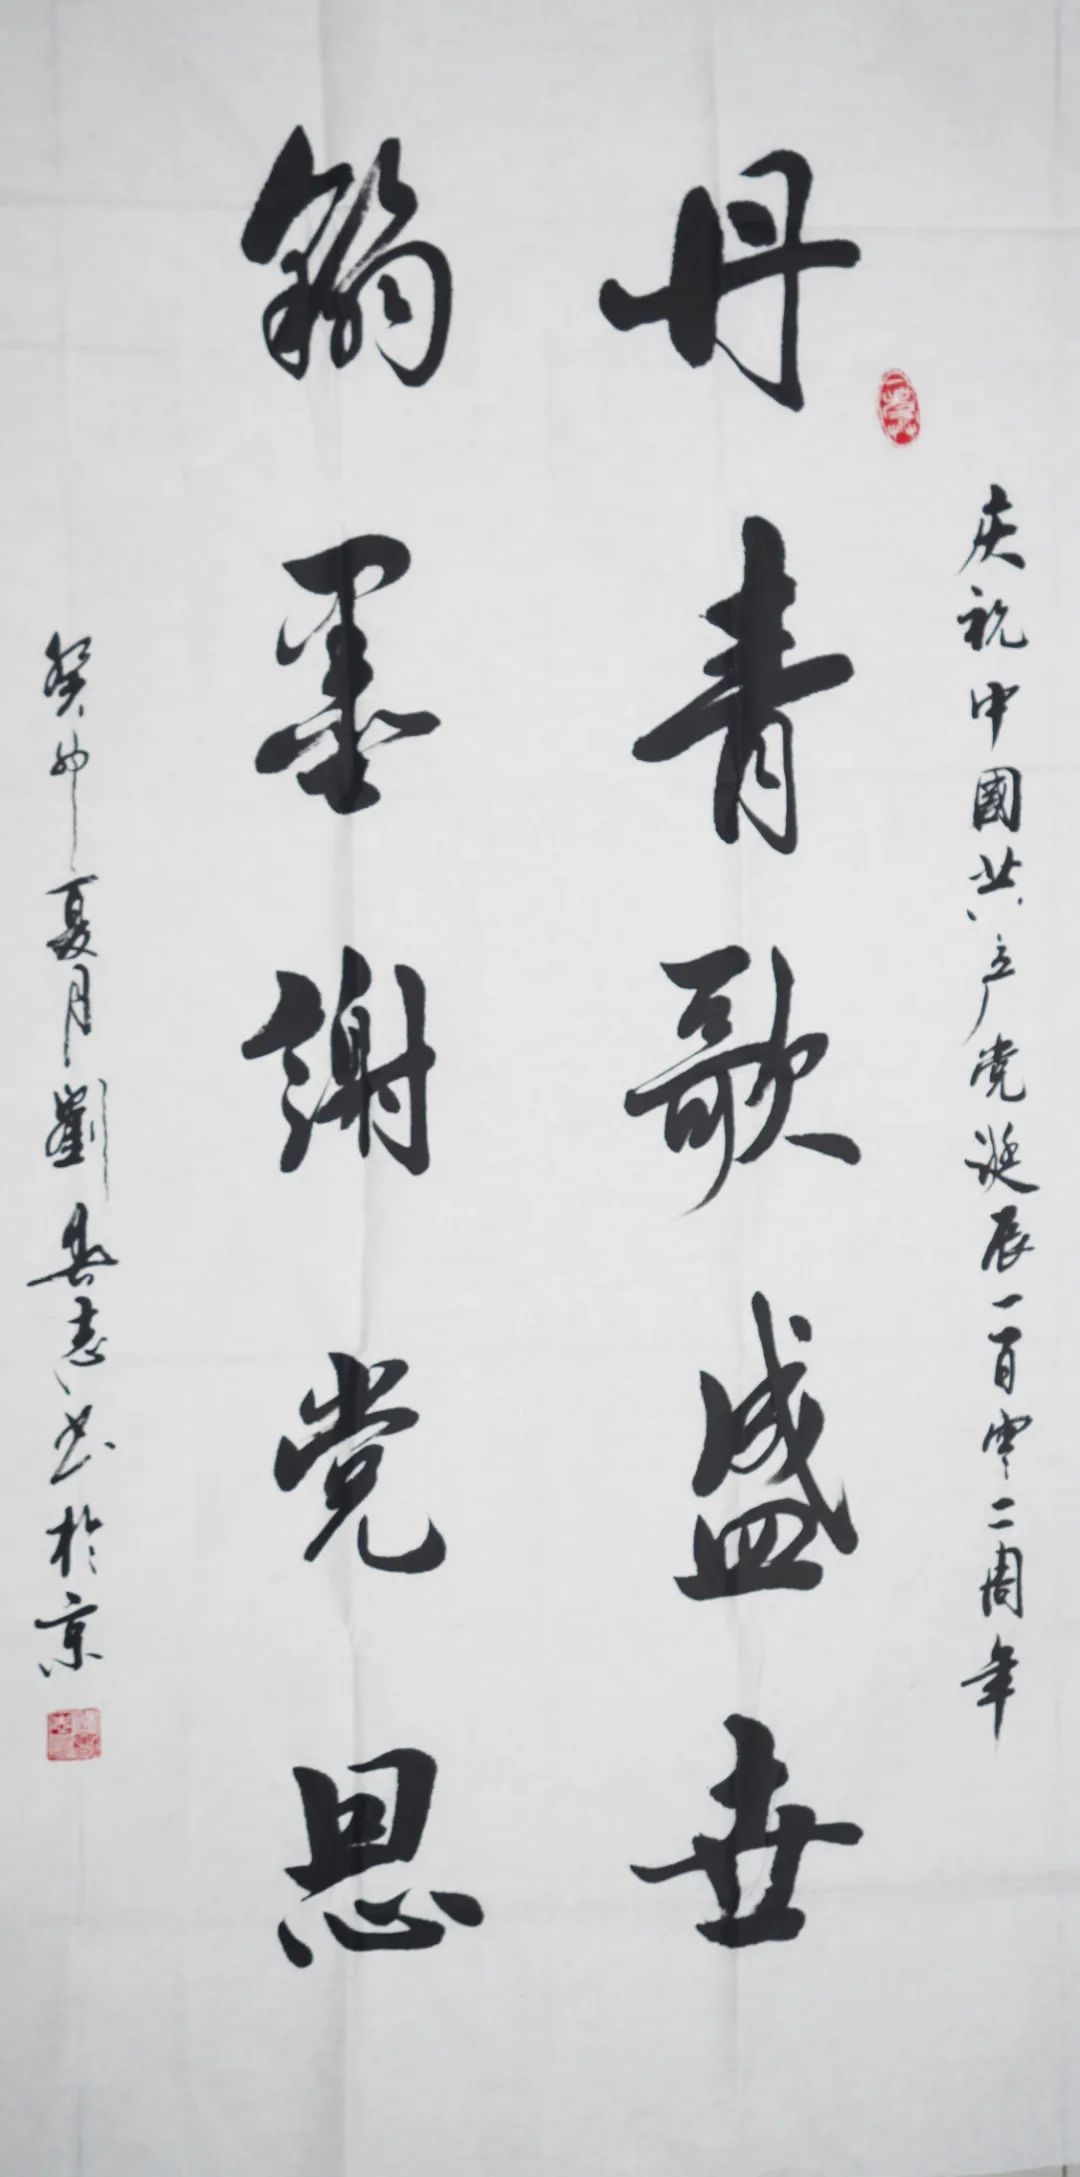 庆祝中國共产党诞辰一百零二周年
丹青歌盛世
翰墨謝党恩
癸卯夏月劉兴志书於京